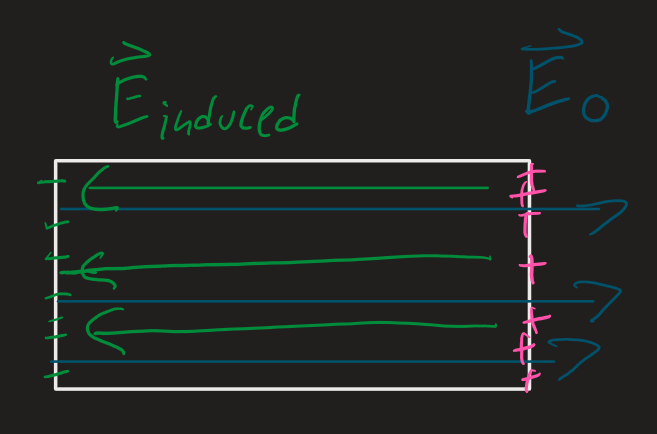 E induced
E₀